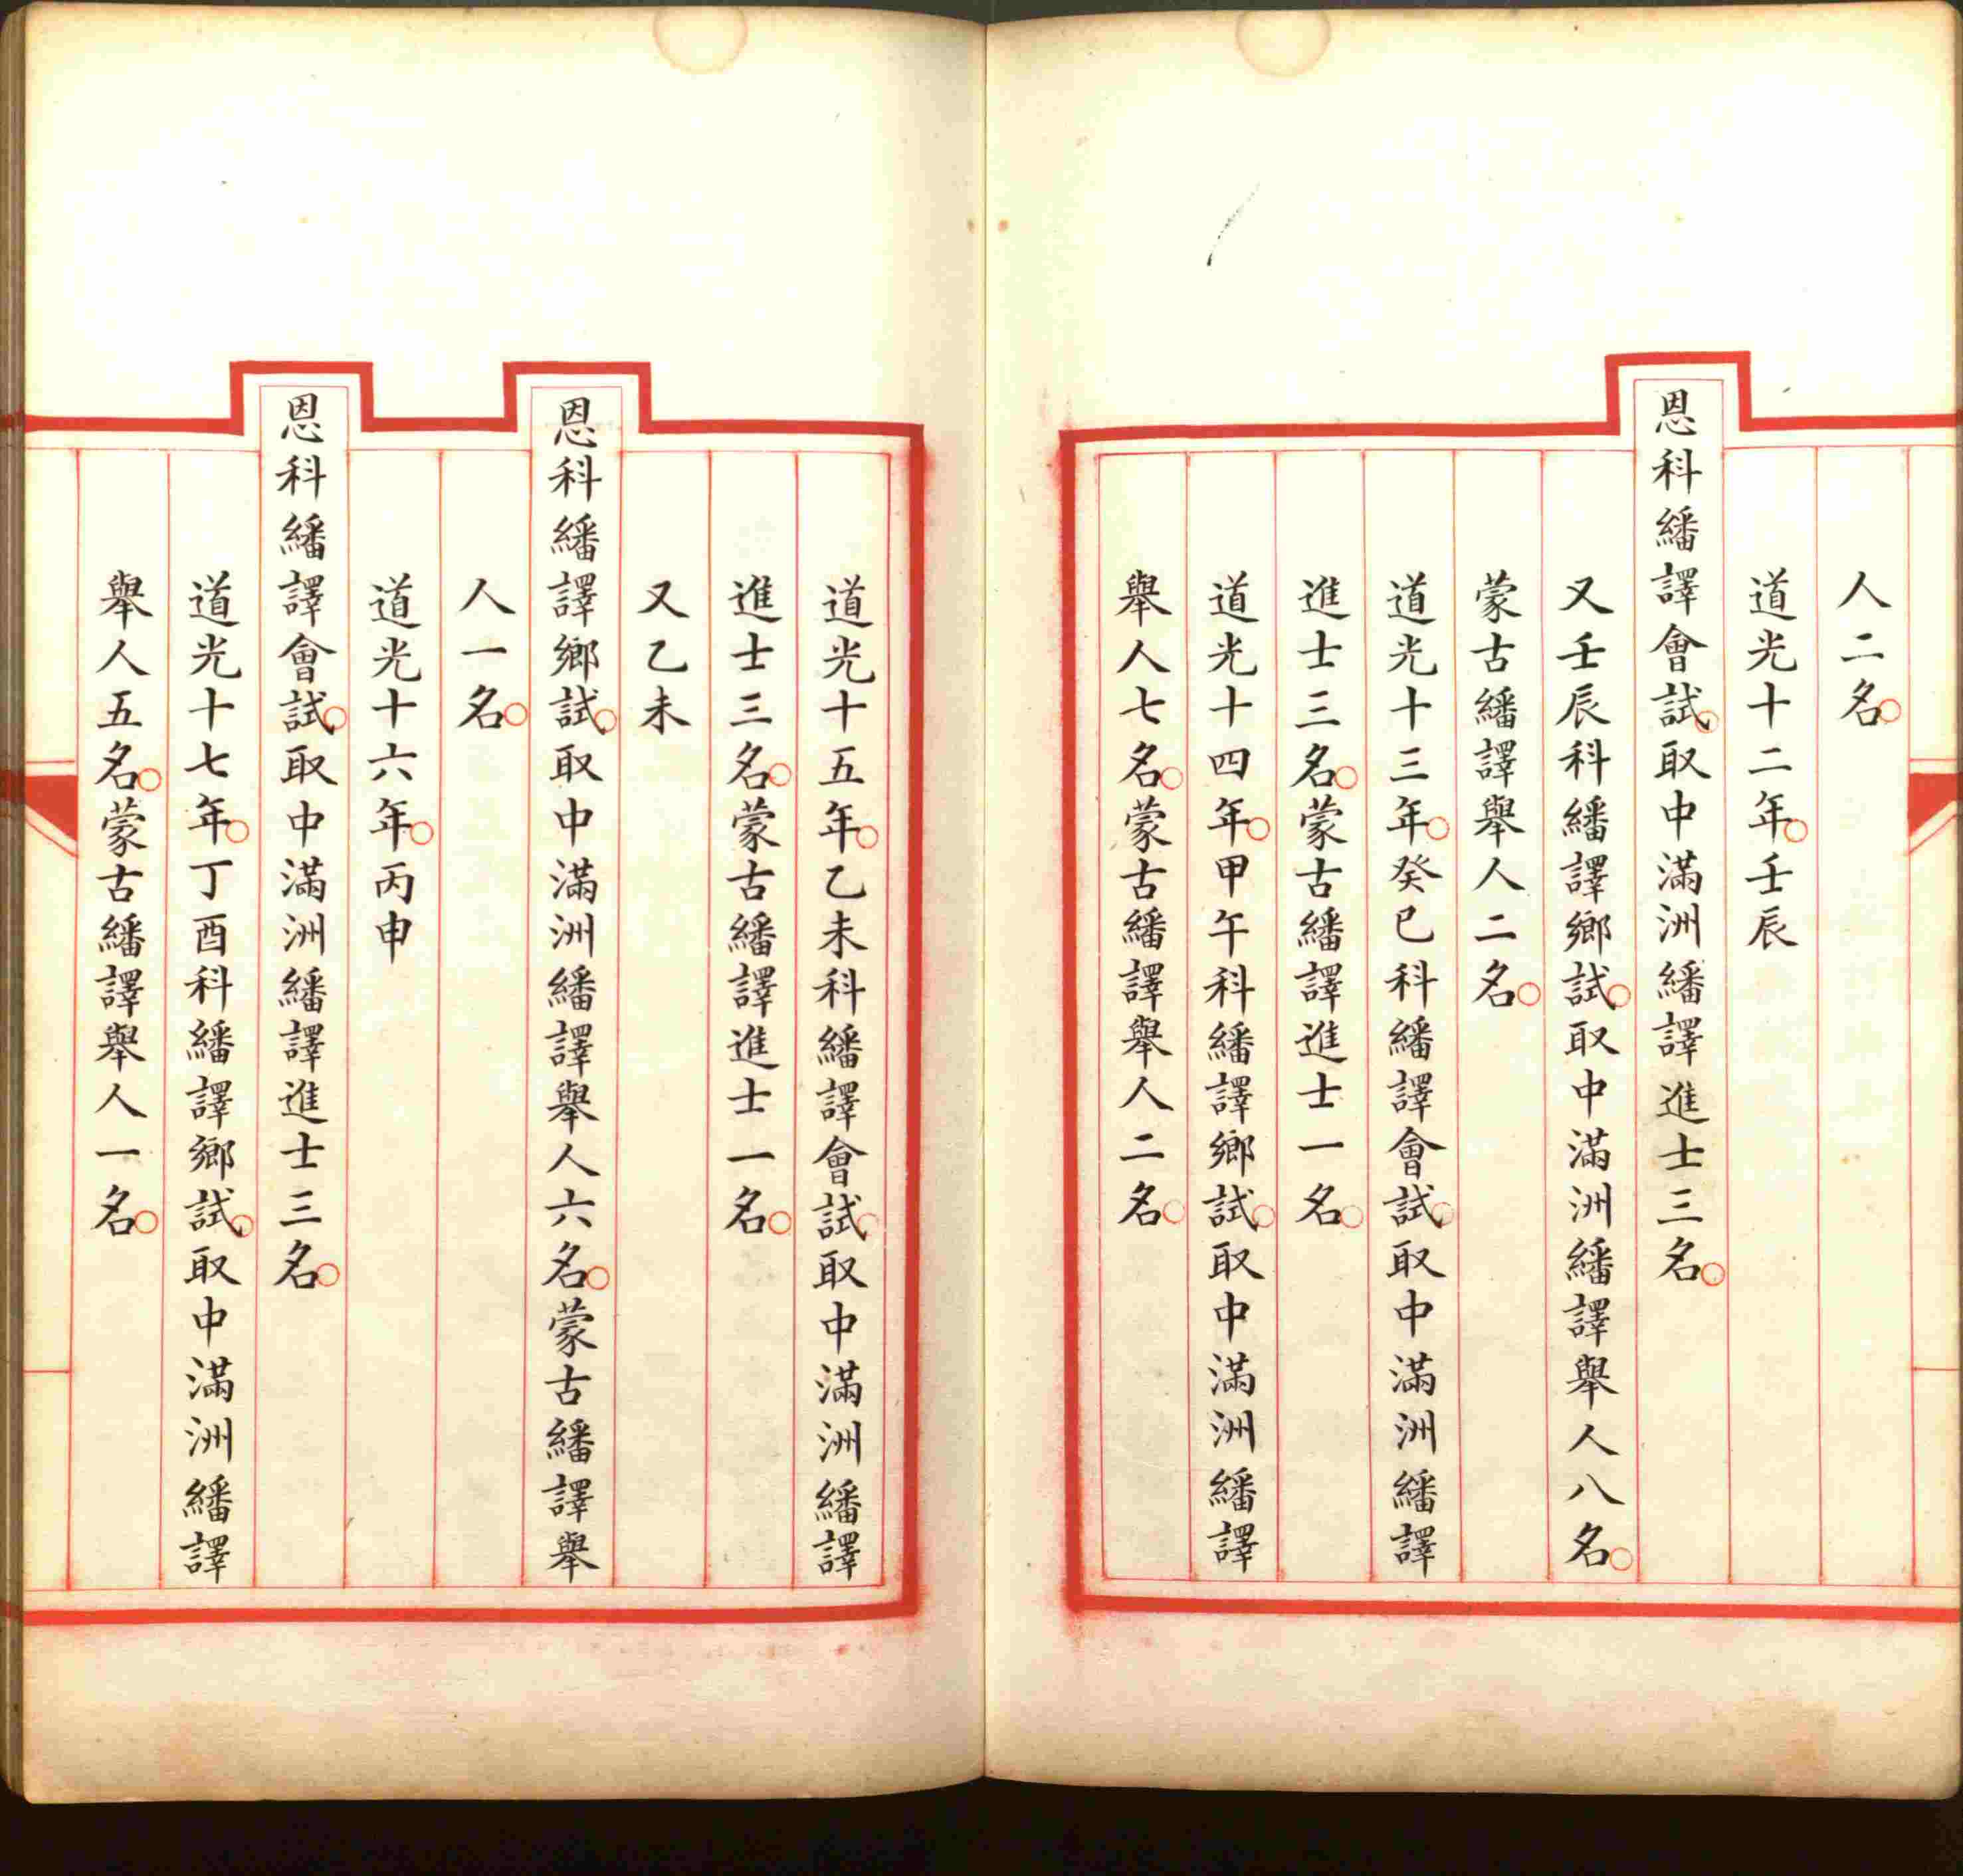 人二名
道光十二年壬辰
恩科繙譯會試取中滿洲繙譯進士三名
又壬辰科繙譯鄉試取中滿洲繙譯舉人八名
蒙古繙譯舉人二名
道光十三年癸巳科繙譯會試取中滿洲繙譯
進士三名蒙古繙譯進士一名
道光十四年甲午科繙譯鄉試取中滿洲繙譯
舉人七名蒙古繙譯舉人二名
道光十五年乙未科繙譯會試取中滿洲繙譯
進士三名蒙古繙譯進士一名
又乙未
恩科繙譯鄉試取中滿洲繙譯舉人六名蒙古繙譯舉
人一名
道光十六年丙申
恩科繙譯會試取中滿洲繙譯進士三名
道光十七年丁酉科繙譯鄉試取中滿洲繙譯
舉人五名蒙古繙譯舉人一名